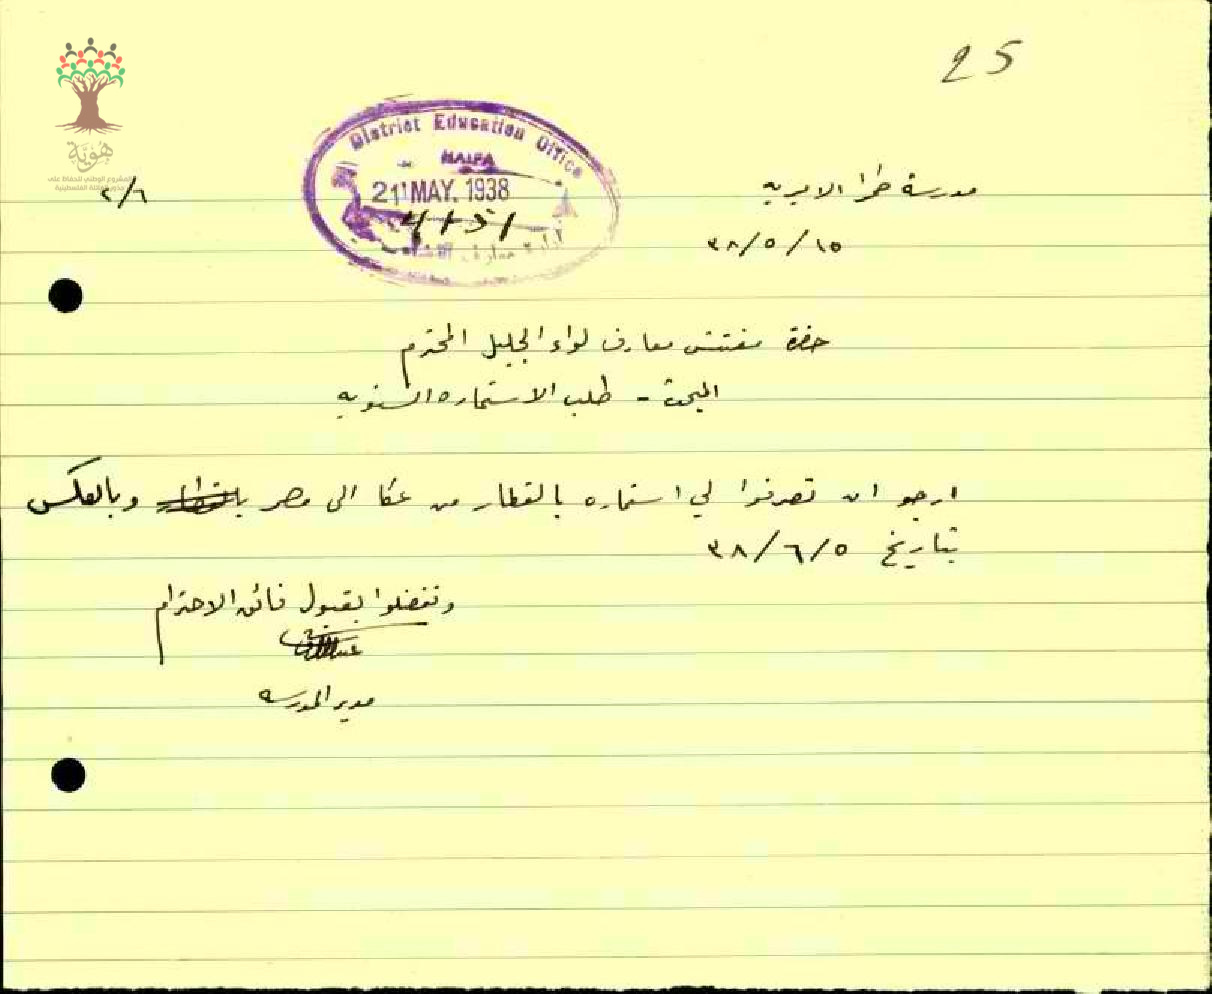 25
هوية
المشروع الوطني للحفاظ على
جذور العائلة الفلسطينية
District Education Office
HAIFA
21 MAY. 1938
٢/٦
مدرسة طمرا الاميريه
٣٨/٥/١٥
حضرة مفتش معارف لواء الجليل المحترم
المبحث - طلب الاستماره السنويه
ارجو ان تصرفوا لي استماره بالقطار من عكا الى مصر وبالعكس
بتاريخ ٣٨/٦/٥
وتفضلوا بقبول فائق الاحترام
مدير المدرسه